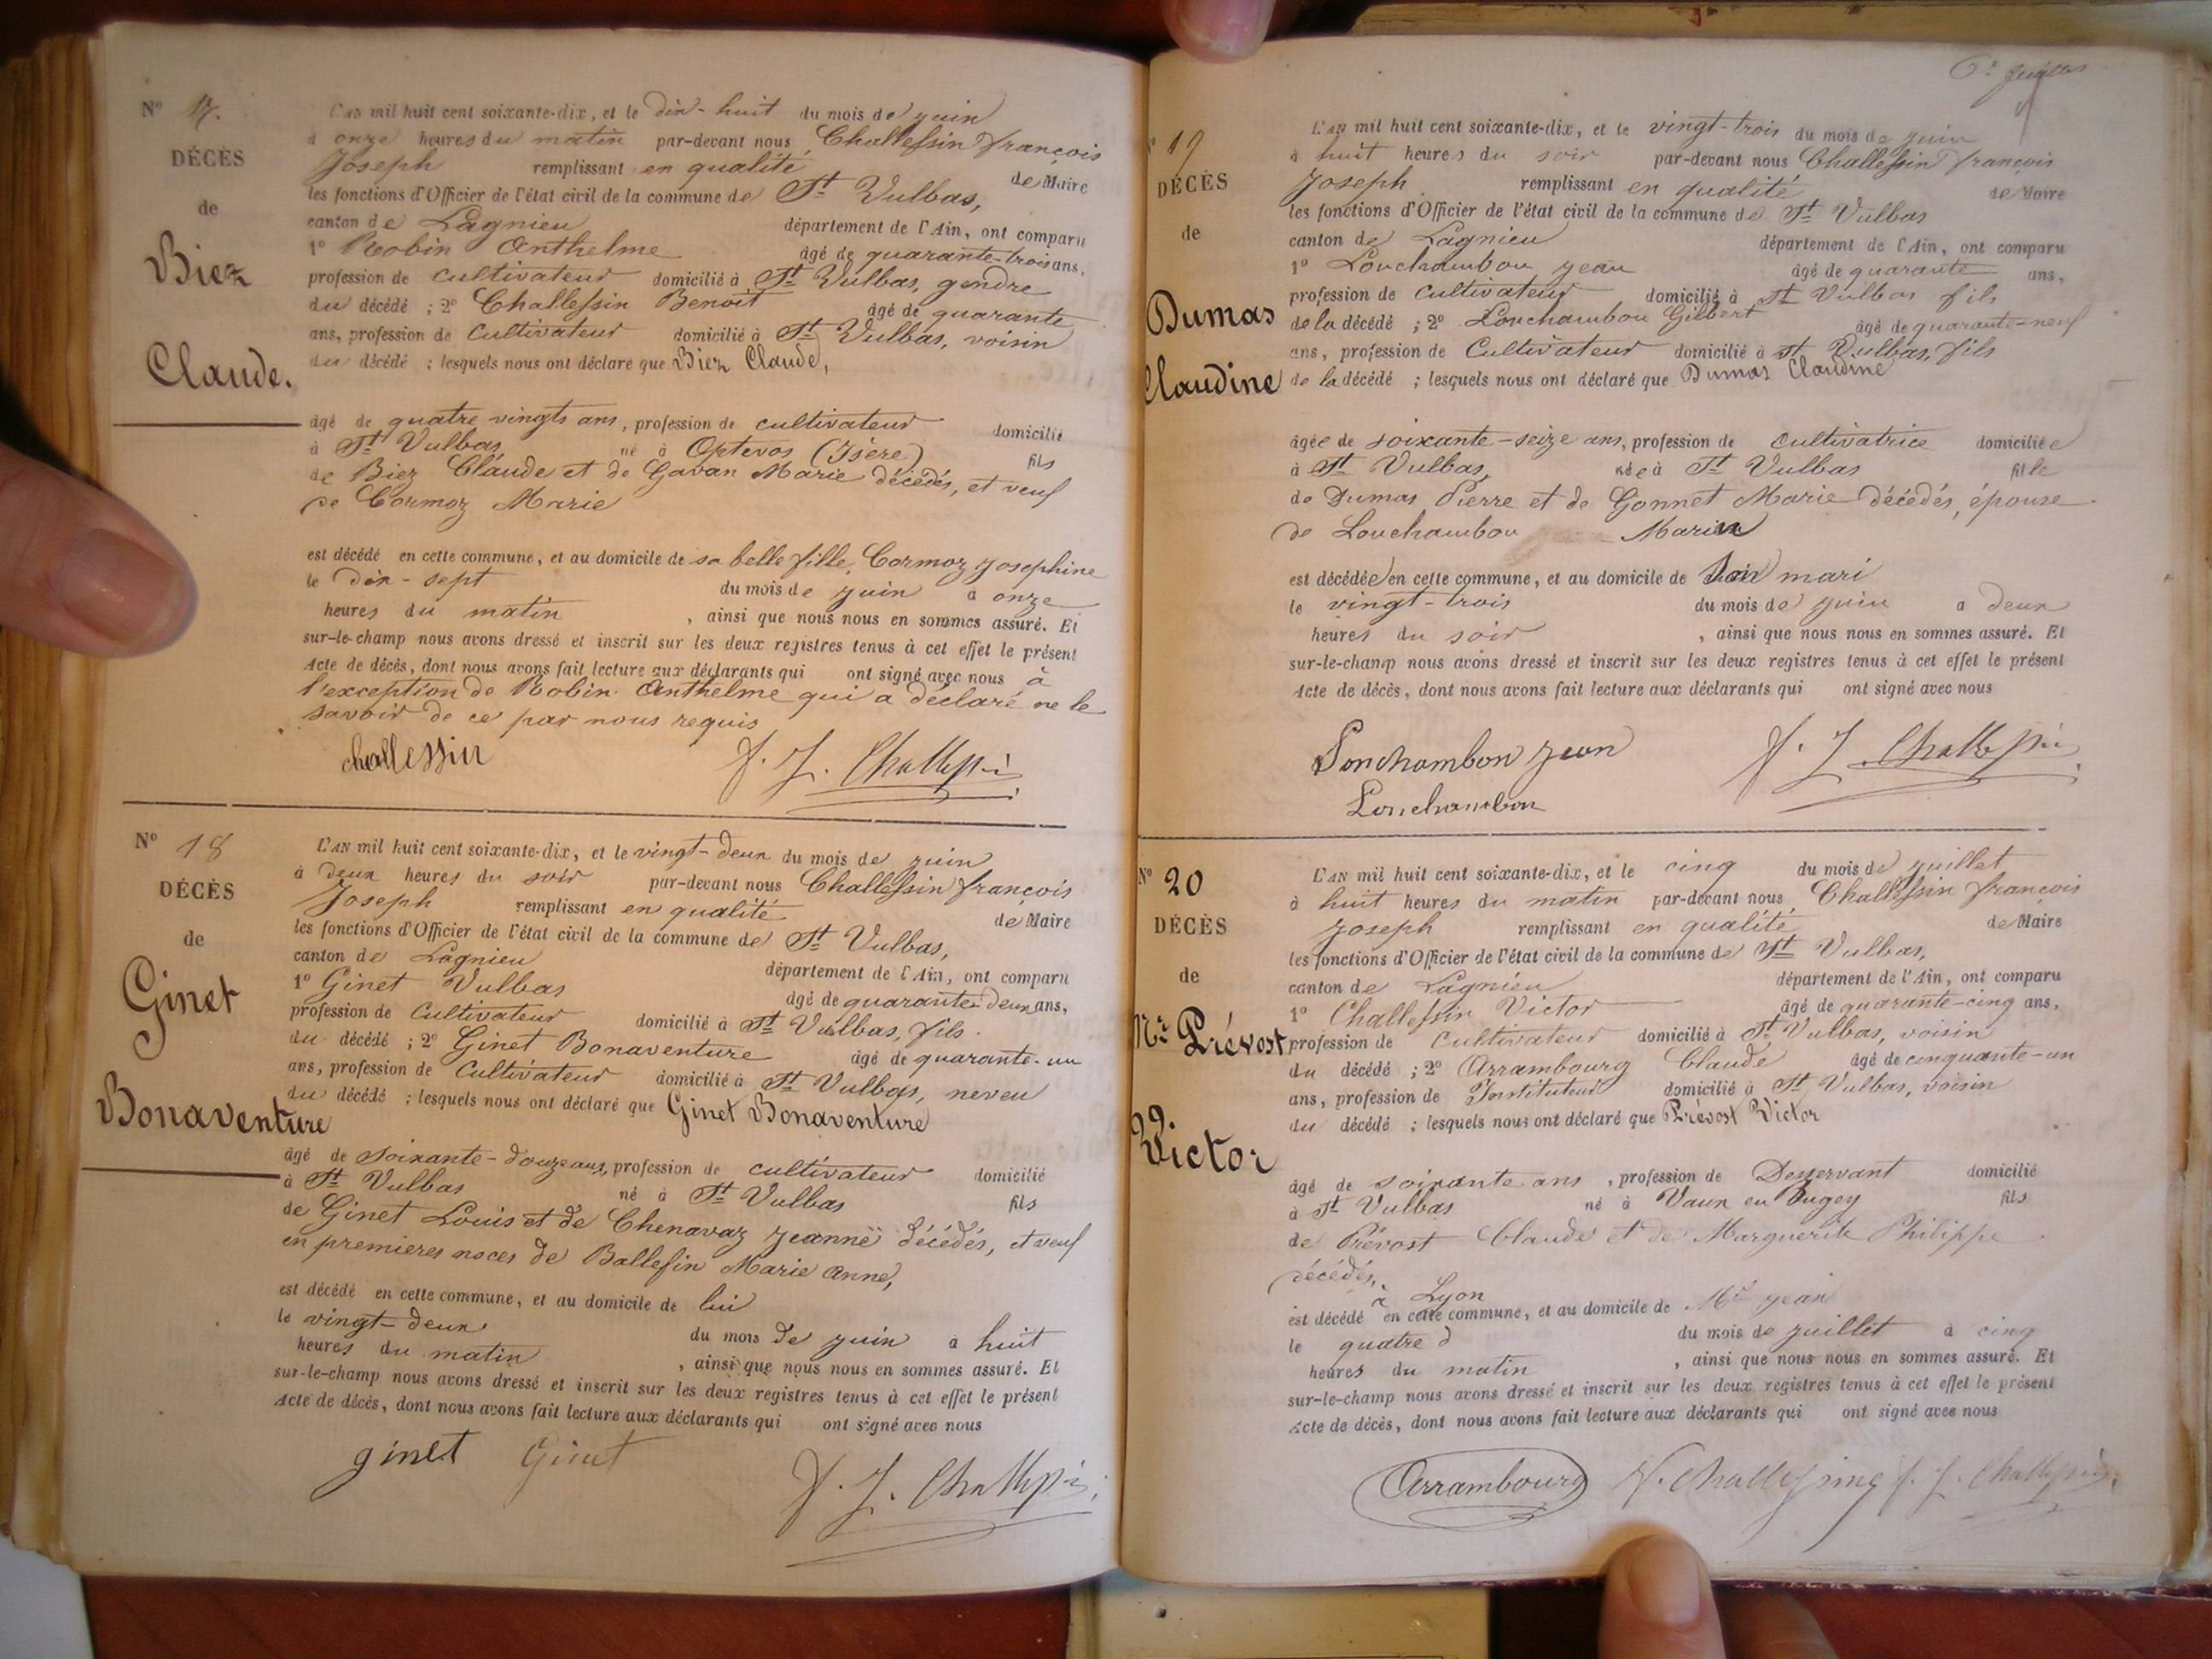 Nº 17.
DÉCÈS
de
Biez
Claude.
L'AN mil huit cent soixante-dix, et le dix-huit du mois de juin
à onze heures du matin par-devant nous Challessin françois
Joseph remplissant en qualité de Maire
les fonctions d'Officier de l'état civil de la commune de St Vulbas,
canton de Lagnieu département de l'Ain, ont comparu
1º Robin Anthelme âgé de quarante-trois ans,
profession de cultivateur domicilié à St Vulbas, gendre
du décédé ; 2º Challessin Benoit âgé de quarante
ans, profession de cultivateur domicilié à St Vulbas, voisin
du décédé ; lesquels nous ont déclaré que Biez Claude,
âgé de quatre vingts ans, profession de cultivateur domicilié
à St Vulbas, né à Optevos (Isère) fils
de Biez Claude et de Gavan Marie décédés, et veuf
de Cormoz Marie
est décédé en cette commune, et au domicile de sa belle fille, Cormoz Josephine
le dix-sept du mois de juin à onze
heures du matin , ainsi que nous nous en sommes assuré. Et
sur-le-champ nous avons dressé et inscrit sur les deux registres tenus à cet effet le présent
Acte de décès, dont nous avons fait lecture aux déclarants qui ont signé avec nous à
l'exception de Robin Anthelme qui a déclaré ne le
savoir de ce par nous requis
challessin F. J. Challessin
Nº 18
DÉCÈS
de
Ginet
Bonaventure
L'AN mil huit cent soixante-dix, et le vingt-deux du mois de juin
à deux heures du soir par-devant nous Challessin françois
Joseph remplissant en qualité de Maire
les fonctions d'Officier de l'état civil de la commune de St Vulbas,
canton de Lagnieu département de l'Ain, ont comparu
1º Ginet Vulbas âgé de quarante-deux ans,
profession de Cultivateur domicilié à St Vulbas, fils
du décédé ; 2º Ginet Bonaventure âgé de quarante-un
ans, profession de Cultivateur domicilié à St Vulbas, neveu
du décédé ; lesquels nous ont déclaré que Ginet Bonaventure
âgé de soixante-douze ans, profession de cultivateur domicilié
à St Vulbas né à St Vulbas fils
de Ginet Louis et de Chenavaz Jeanne décédés, et veuf
en premieres noces de Ballesin Marie Anne,
est décédé en cette commune, et au domicile de lui
le vingt-deux du mois de juin à huit
heures du matin , ainsi que nous nous en sommes assuré. Et
sur-le-champ nous avons dressé et inscrit sur les deux registres tenus à cet effet le présent
Acte de décès, dont nous avons fait lecture aux déclarants qui ont signé avec nous
ginet Ginet
F. J. Challessin
6e feuillet
Nº 19
DÉCÈS
de
Dumas
Claudine
L'AN mil huit cent soixante-dix, et le vingt-trois du mois de juin
à huit heures du soir par-devant nous Challessin françois
Joseph remplissant en qualité de Maire
les fonctions d'Officier de l'état civil de la commune de St Vulbas
canton de Lagnieu département de l'Ain, ont comparu
1º Louchambon Jean âgé de quarante ans,
profession de cultivateur domicilié à St Vulbas fils
de la décédé ; 2º Louchambon Gilbert âgé de quarante-neuf
ans, profession de Cultivateur domicilié à St Vulbas, fils
de la décédé ; lesquels nous ont déclaré que Dumas Claudine
âgée de soixante-seize ans, profession de cultivatrice domiciliée
à St Vulbas, née à St Vulbas fille
de Dumas Pierre et de Gonnet Marie décédés, épouse
de Louchambon Marin
est décédée en cette commune, et au domicile de Son mari
le vingt-trois du mois de juin à deux
heures du soir , ainsi que nous nous en sommes assuré. Et
sur-le-champ nous avons dressé et inscrit sur les deux registres tenus à cet effet le présent
Acte de décès, dont nous avons fait lecture aux déclarants qui ont signé avec nous
Lonchambon Jean F. J. Challessin
Lonchambon
Nº 20
DÉCÈS
de
Mr Prévost
Victor
L'AN mil huit cent soixante-dix, et le cinq du mois de juillet
à huit heures du matin par-devant nous Challessin françois
Joseph remplissant en qualité de Maire
les fonctions d'Officier de l'état civil de la commune de St Vulbas,
canton de Lagnieu département de l'Ain, ont comparu
1º Challessin Victor âgé de quarante-cinq ans,
profession de Cultivateur domicilié à St Vulbas, voisin
du décédé ; 2º Arrambourg Claude âgé de cinquante-un
ans, profession de Instituteur domicilié à St Vulbas, voisin
du décédé ; lesquels nous ont déclaré que Prévost Victor
âgé de soixante ans , profession de Desservant domicilié
à St Vulbas né à Vaux en Bugey fils
de Prévost Claude et de Marguerite Philippe
décédés,
à Lyon
est décédé en cette commune, et au domicile de Mr Jean
le quatre du mois de juillet à cinq
heures du matin , ainsi que nous nous en sommes assuré. Et
sur-le-champ nous avons dressé et inscrit sur les deux registres tenus à cet effet le présent
Acte de décès, dont nous avons fait lecture aux déclarants qui ont signé avec nous
Arrambourg V. Challessin F. J. Challessin